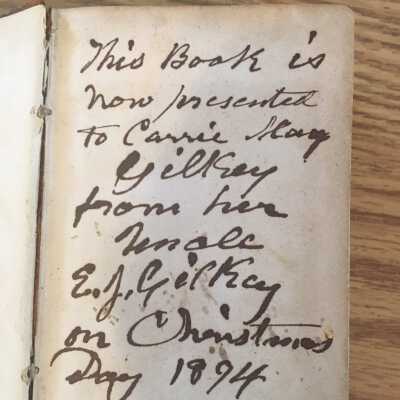 This Book is
now presented
to Carrie May
Gilkey
from her
Uncle
E. J. Gilkey
on Christmas
Day 1894